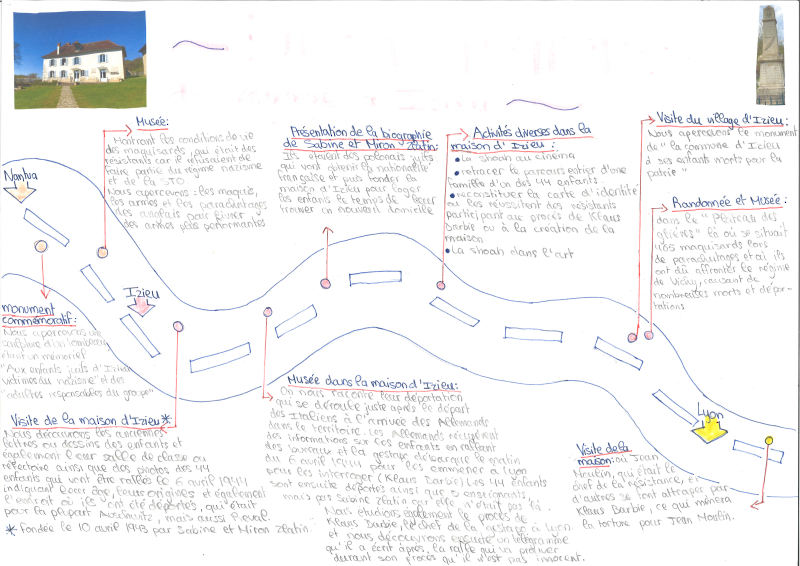 Musée:
Montrant les conditions de vie
des maquisards, qui était des
résistants car il refusaient de
faire partie du régime nazisme
et de la STO
Nous apercevons : les maquis,
les armes et les parachutages
des anglais pour livrer
des armes plus performantes
Présentation de la biographie
de Sabine et Miron Zlatin:
Ils étaient des polonais juifs
qui vont obtenir la nationalité
française et puis fonder la
maison d'Izieu pour loger
les enfants le temps de leur
trouver un nouveau domicile
Activités diverses dans la
maison d'Izieu :
• La shoah au cinéma
• retracer le parcours entier d'une
famille d'un des 44 enfants
• reconstituer la carte d'identité
ou les réussites des résistants
participant au procès de Klaus
Barbie ou à la création de la
maison
• La shoah dans l'art
Visite du village d'Izieu :
Nous apercevons le monument
de "la commune d'Izieu
à ses enfants morts pour la
patrie"
Randonnée et Musée:
dans le "Plateau des
glières" là où se situait
465 maquisards lors
de parachutages et où ils
ont dû affronter le régime
de Vichy, causant de
nombreuses morts et dépor-
tations
Nantua
Izieu
Lyon
monument
commémoratif:
Nous apercevons une
sculpture d'un tombeau,
étant un mémoriel
"Aux enfants juifs d'Izieu
victimes du nazisme" et des
"adultes responsables du groupe"
Visite de la maison d'Izieu*
Nous découvrons les anciennes
lettres ou dessins des enfants et
également leur salle de classe ou
réfectoire ainsi que des photos des 44
enfants qui vont être raflés le 6 avril 1944
indiquant leur âge, leurs origines et également
l'endroit où ils ont été déportés, qui était
pour la plupart Auschwitz, mais aussi Reval.
* Fondée le 10 avril 1943 par Sabine et Miron Zlatin
Musée dans la maison d'Izieu:
On nous raconte leur déportation
qui se déroule juste après le départ
des Italiens à l'arrivée des Allemands
dans le territoire. Les Allemands récupèrent
des informations sur ces enfants en raflant
des bureaux et la gestapo débarque le matin
du 6 avril 1944 pour les emmener à Lyon
pour les interroger (Klaus Barbie) Les 44 enfants
sont ensuite déportés ainsi que 6 enseignants,
mais pas Sabine Zlatin car elle n'était pas là.
Nous étudions également le procès de
Klaus Barbie, le chef de la gestapo à Lyon
et nous découvrons ensuite un télégramme
qu'il a écrit après la rafle qui va prouver
durant son procès qu'il n'est pas innocent.
Visite de la
maison: où Jean
Moulin, qui était le
chef de la résistance, et
d'autres se font attraper par
Klaus Barbie, ce qui mènera
la torture pour Jean Moulin.